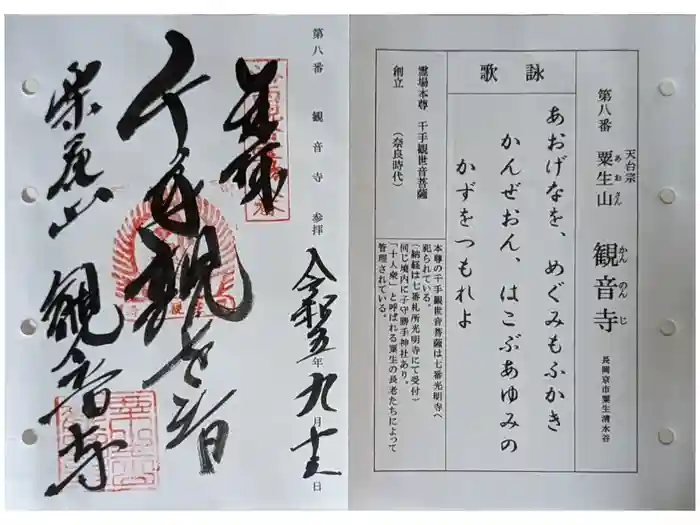 天台宗
第八番 粟生山 観音寺 長岡京市粟生清水谷
あおさん
かんのんじ
詠歌
あおげなを、めぐみもふかき
かんぜおん、はこぶあゆみの
かずをつもれよ
霊場本尊 千手観世音菩薩
創立 (奈良時代)
本尊の千手観世音菩薩は七番光明寺へ
祀られている。
(納経は七番札所光明寺にて受付)
同じ境内に子守勝手神社あり。
「十人衆」と呼ばれる粟生の長老たちによって
管理されている。
第八番 観音寺 参拝 令和五年九月十三日
奉拝
千手観世音
粟生山 観音寺